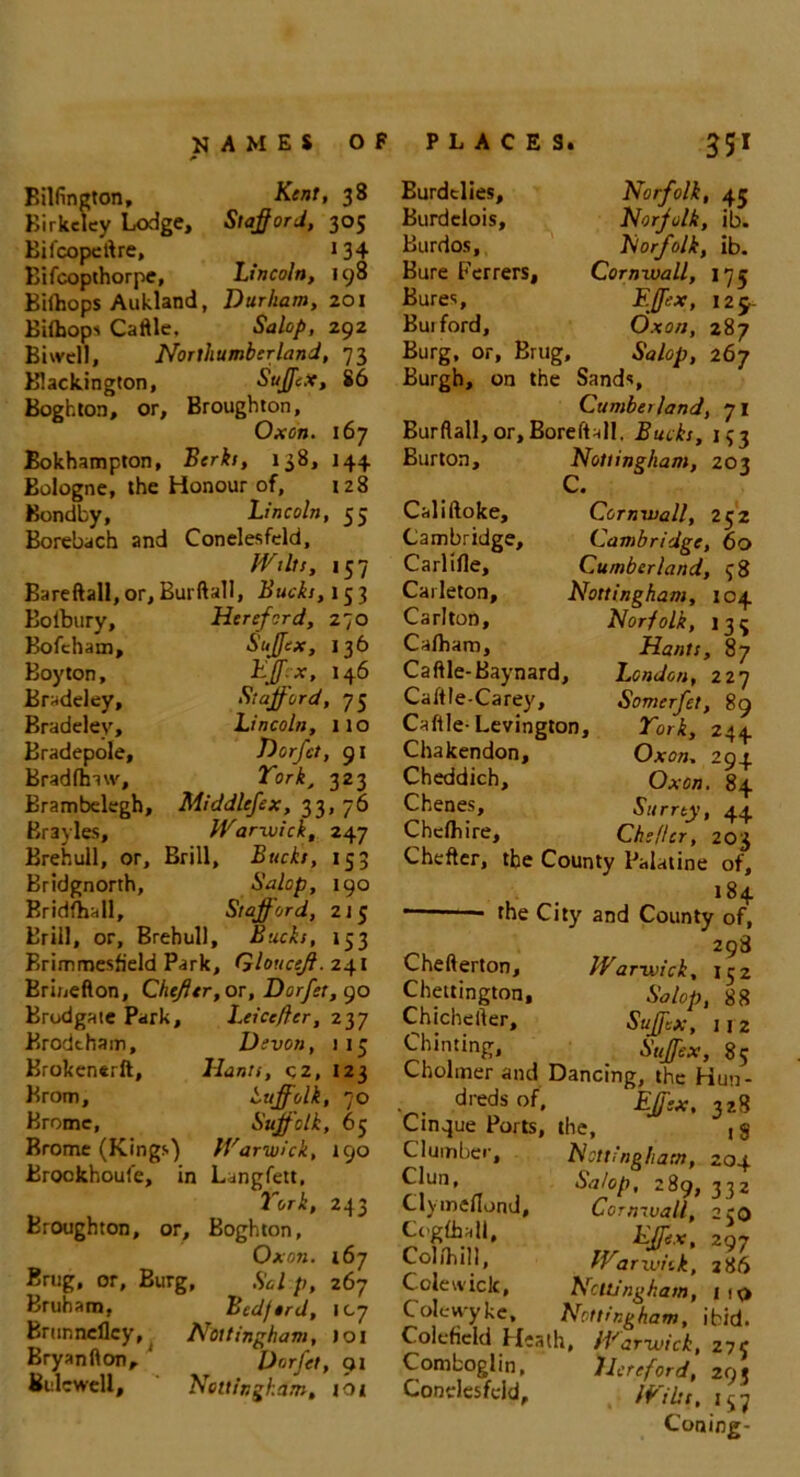 NAMES OF PLACES. 351
Bilſington, Kent, 38
Birkeley Lodge, Stafford, 305
Biſcopeſtre, 134
Biſcopthorpe, Lincoln, 198
Biſhops Aukland, Durham, 201
Biſhops Caſtle. Salop, 292
Biwell, Northumberland, 73
Blackington, Suſſex, 86
Boghton, or, Broughton,
Oxon. 167
Bokhampton, Berks, 138, 144
Bologne, the Honour of, 128
Bondby, Lincoln, 55
Borebach and Conelesfeld,
Wilts, 157
Bareſtall, or, Burſtall, Bucks, 153
Boſbury, Hereford, 270
Boſeham, Suſſex, 136
Boyton, Eſſex, 146
Bradeley, Stafford, 75
Bradeley, Lincoln, 110
Bradepole, Dorſet, 91
Bradſhaw, York, 323
Brambelegh, Middleſex, 33, 76
Brayles, Warwick, 247
Brehull, or, Brill, Bucks, 153
Bridgnorth, Salop, 190
Bridſhall, Stafford, 215
Brill, or, Brehull, Bucks, 153
Brimmesfield Park, Glouceſt. 241
Brineſton, Cheſter, or, Dorſet, 90
Brodgate Park, Leiceſter, 237
Brodeham, Devon, 115
Brokenerſt, Hants, 52, 123
Brom, Suffolk, 70
Brome, Suffolk, 65
Brome (Kings) Warwick, 190
Brockhouſe, in Langfett,
York, 243
Broughton, or, Boghton,
Oxon. 167
Brug, or, Burg, Salop, 267
Bruham, Bedford, 107
Brunneſley, Nottingham, 101
Bryanſton, Dorſet, 91
Bulewell, Nottingham, 101
Burdelies, Norfolk, 45
Burdelois, Norfolk, ib.
Burdos, Norfolk, ib.
Bure Ferrers, Cornwall, 175
Bures, Eſſex, 125
Burford, Oxon, 287
Burg, or, Brug, Salop, 267
Burgh, on the Sands,
Cumberland, 71
Burſtall, or, Boreſtall. Bucks, 153
Burton, Nottingham, 203
C.
Caliſtoke, Cornwall, 252
Cambridge, Cambridge, 60
Carliſle, Cumberland, 58
Carleton, Nottingham, 104
Carlton, Norfolk, 135
Caſham, Hants, 87
Caſtle-Baynard, London, 227
Caſtle-Carey, Somerſet, 89
Caſtle-Levington, York, 244
Chakendon, Oxon. 294
Cheddich, Oxon. 84
Chenes, Surrey, 44
Cheſhire, Cheſter, 203
Cheſter, the County Palatine of,
184
—— the City and County of,
298
Cheſterton, Warwick, 152
Chettington, Salop, 88
Chicheſter, Suſſex, 112
Chinting, Suſſex, 85
Cholmer and Dancing, the Hun-
dreds of, Eſſex, 328
Cinque Ports, the, 18
Clumber, Nottingham, 204
Clun, Salop, 289, 332
Clymeſlond, Cornwall, 250
Cogſhall, Eſſex, 297
Colſhill, Warwick, 286
Colewick, Nottingham, 110
Colewyke, Nottingham, ibid.
Colefield Heath, Warwick, 275
Comboglin, Hereford, 295
Conelesfeld, Wilts, 157
Coning-